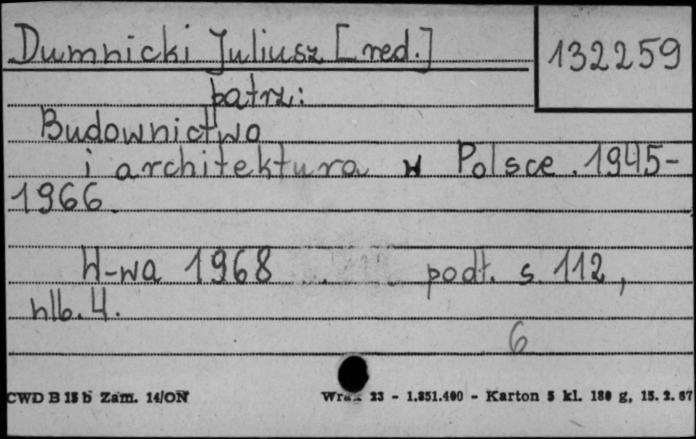 Dumnicki Juliusz [red.]
132259
patrz:
Budownictwo
i architektura w Polsce. 1945-
1966.
W-wa 1968 podł. s. 112,
nlb. 4.
6
CWD B 15 b Zam. 14/ON
23 - 1.851.400 - Karton 5 kl. 180 g, 15. 2. 67